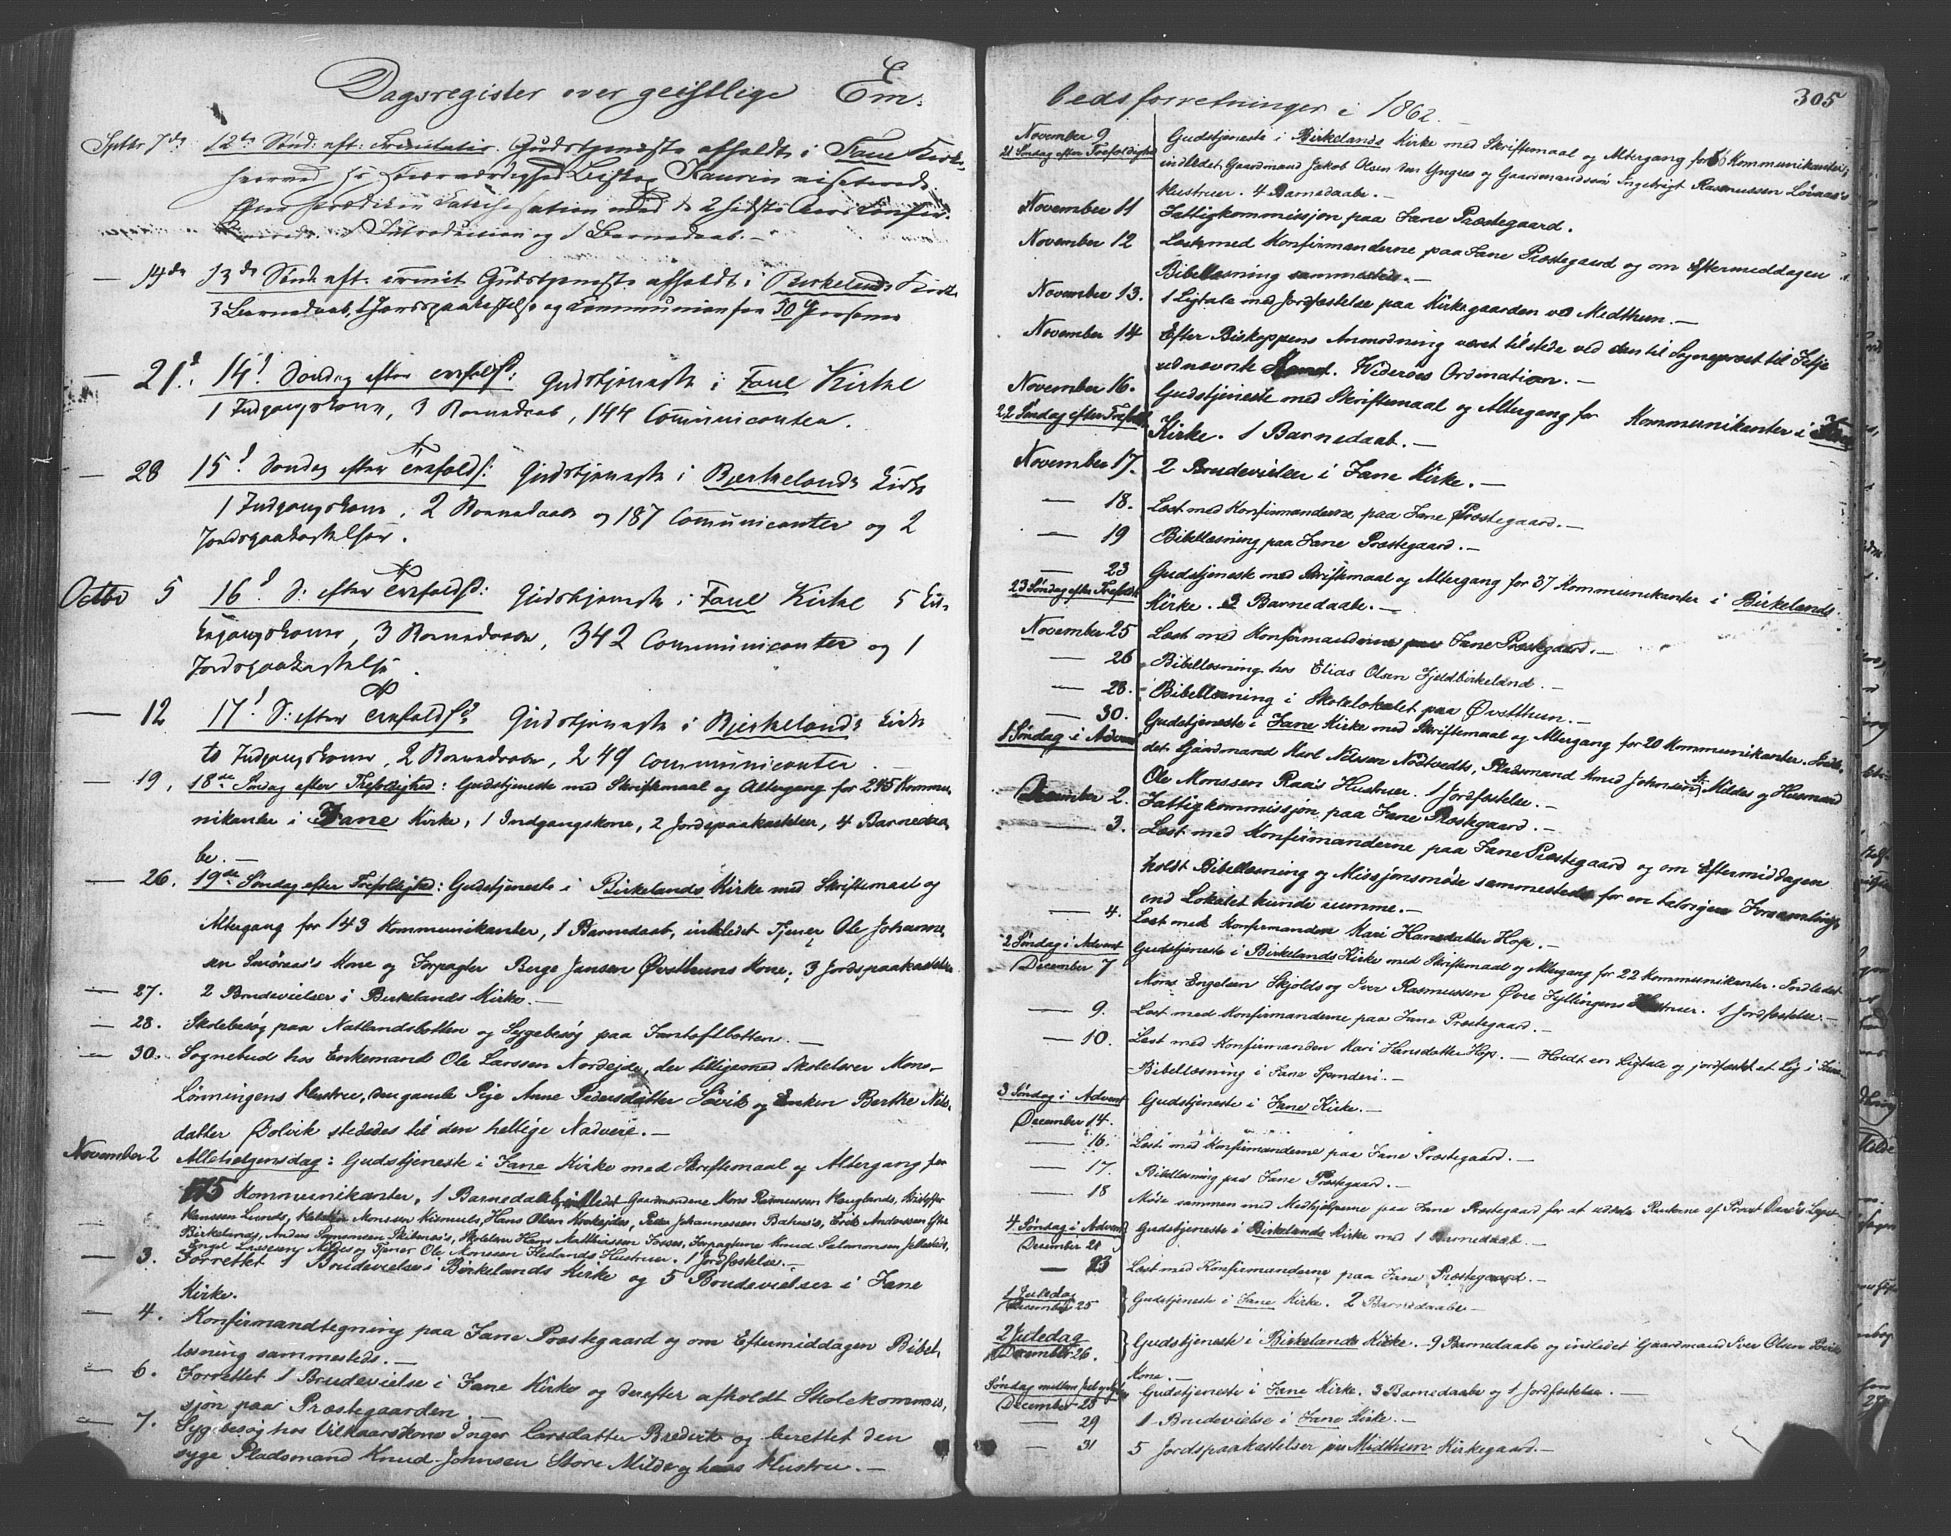 Dagsregister over geistlige Em-
Septbr 7de 12te Sønd: eft: Trinitatis. Gudstjeneste afholdt i Fane Kirke
Høiærværdighed Biskop Kaurin visiterede.
2 sidste Aars Confir-
Introduction og 1 Barnedaab. —
— 14de 13de Sønd: eft. Gudstjeneste afholdt i Birkelands Kirke
3 Barnedaab, 1 Jordspaakastelse og Communion for 50 Personer
— 21d. 14d Søndag efter Trefoldh: Gudstjeneste i Fane Kirke
1 Indgangskone, 3 Barnedaab, 144 Communicanter.
— 28 15d Søndag efter Trefoldh: Gudstjeneste i Birkelands Kirke
1 Indgangskone, 2 Barnedaab og 187 Communicanter og 2
Jordspaakastelser.
Octbr 5 16d S: efter Trefoldh: Gudstjeneste i Fane Kirke 5 In-
gangskoner, 3 Barnedaab, 342 Communicanter og 1
Jordspaakastelse.
— 12 17d S: efter Trefoldh: Gudstjeneste i Birkelands Kirke
to Indgangskoner, 2 Barnedaab, 249 Communicanter.
— 19. 18de Søndag efter Trefoldighed: Gudstjeneste med Skriftemaal og Altergang for 245 Kommu-
nikanter i Fane Kirke, 1 Indgangskone, 2 Jordspaakastelser, 4 Barnedaa-
be. —
— 26. 19de Søndag efter Trefoldighed: Gudstjeneste i Birkelands Kirke med Skriftemaal og
Altergang for 143 Kommunikanter, 1 Barnedaab, indledet Tjener Ole Johanne-
sen Smøraas's Kone og Forpagter Berge Jansen Øvsthuns Kone; 3 Jordspaakastelser
— 27. 2 Brudevielser i Birkelands Kirke. —
— 28. Skolebesøg paa Natlandsbotten og Sygebesøg paa Fantoftbotten. —
— 30. Sognebud hos Enkemand Ole Larssen Nordeide, der tilligemed Skolelærer Mons
Lønningens Hustru, den gamle Pige Anne Pedersdatter Søvik og Enken Berthe Nils-
datter Bolvik stededes til den hellige Nadvere. —
November 2 Allehelgensdag: Gudstjeneste i Fane Kirke med Skriftemaal og Altergang for
175 Kommunikanter, 1 Barnedaab, indledet Gaardmændene Mons Rasmussen Hauglands, Kristoffer
Hanssen Lunds, Monssen Kismuls, Hans Olsen Peder Johannessen Erik Anderssen
Birkelands, Anders Hans Matthiassen Forpagterne Knud Salamonsen
og Tjener Ole Monssen Hustruer. 1 Jordfæstelse. —
— 3. Forrettet 1 Brudevielse i Birkelands Kirke og 5 Brudevielser i Fane
Kirke.
— 4. Konfirmandtegning paa Fane Præstegaard og om Eftermiddagen Bibel-
læsning sammesteds. —
— 6. Forrettet 1 Brudevielse i Fane Kirke og derefter afholdt Skolekommis-
sjon paa Præstegaarden. —
— 7. Sygebesøg hos Vilkaarskone Inger Larsdatter Bredvik og berettet den
syge Pladsmand Knud Johnsen Store Milde og hans Hustru. —
bedsforretninger i 1862.
305
November 9 Gudstjeneste i Birkelands Kirke med Skriftemaal og Altergang for Kommunikanter,
21 Søndag efter Trefoldighed indledet Gaardmand Jakob Olsen og Gaardmandssøn Ingebrigt Rasmussen
Hustruer. 4 Barnedaabe. —
November 11 Fattigkommissjon paa Fane Præstegaard.
November 12 Læst med Konfirmanderne paa Fane Præstegaard og om Eftermiddagen
Bibellæsning sammesteds. —
November 13. 1 Ligtale med Jordfæstelse paa Kirkegaarden ved Midthun. —
November 14 Efter Biskoppens Anmodning været tilstede ved den til Sogneprest til
udnævnte Kand. Widerøes Ordination. —
November 16. Gudstjeneste med Skriftemaal og Altergang for Kommunikanter i Fane
22 Søndag efter Trefold: Kirke. 1 Barnedaab. —
November 17. 2 Brudevielser i Fane Kirke. —
— 18. Læst med Konfirmanderne paa Fane Præstegaard. —
— 19 Bibellæsning paa Fane Præstegaard. —
— 23 Gudstjeneste med Skriftemaal og Altergang for 37 Kommunikanter i Birkelands
23 Søndag efter Trefold: Kirke. 3 Barnedaabe. —
November 25 Læst med Konfirmanderne paa Fane Præstegaard. —
— 26 Bibellæsning hos Elias Olsen Fjeldbirkeland. —
— 28. Bibellæsning i Skolelokalet paa Øvsthun. —
— 30. Gudstjeneste i Fane Kirke med Skriftemaal og Altergang for 20 Kommunikanter. Indle-
1 Søndag i Advent det Gaardmand Karl Nilsen Nødtvedts, Pladsmand Knud Johnsen St. Mildes og Husmand
Ole Monssen Raa's Hustruer. 1 Jordfæstelse. —
December 2. Fattigkommissjon paa Fane Præstegaard. —
— 3. Læst med Konfirmanderne paa Fane Præstegaard og om Eftermiddagen
holdt Bibellæsning og Missjonsmøde sammesteds for en talrigere Forsamling,
end Lokalet kunde rumme. —
— 4. Læst med Konfirmanden Mari Hansdatter Hop. —
2 Søndag i Advent Gudstjeneste i Birkelands Kirke med Skriftemaal og Altergang for 22 Kommunikanter. Indledet
December 7 Mons Engelsen Skjolds og Iver Rasmussen Øvre Fyllingens Hustruer. 1 Jordfæstelse. —
— 9. Læst med Konfirmanderne paa Fane Præstegaard. —
— 10. Læst med Konfirmanden Mari Hansdatter Hop. — Holdt en Ligtale og jordfæstet et Lig i Fane.
Bibellæsning i Fane Spinderi. —
3 Søndag i Advent Gudstjeneste i Fane Kirke. —
December 14.
— 16. Læst med Konfirmanderne paa Fane Præstegaard. —
— 17. Bibellæsning paa Fane Præstegaard. —
— 18 Møde sammen med Medhjælperne paa Fane Præstegaard for at uddele Renterne af Provst Legat. —
4 Søndag i Advent Gudstjeneste i Birkelands Kirke med 1 Barnedaab. —
December 21
— 23 Læst med Konfirmanderne paa Fane Præstegaard. —
1 Juledag
December 25 Gudstjeneste i Fane Kirke. 2 Barnedaabe —
2 Juledag
December 26. Gudstjeneste i Birkelands Kirke. — 9 Barnedaabe og indledet Gaardmand Iver Olsen
Kone. —
Søndag mellem Jul og Nytaar Gudstjeneste i Fane Kirke. 3 Barnedaabe og 1 Jordfæstelse. —
December 28
— 29 1 Brudevielse i Fane Kirke. —
— 31 5 Jordspaakastelser paa Midthun Kirkegaard. —